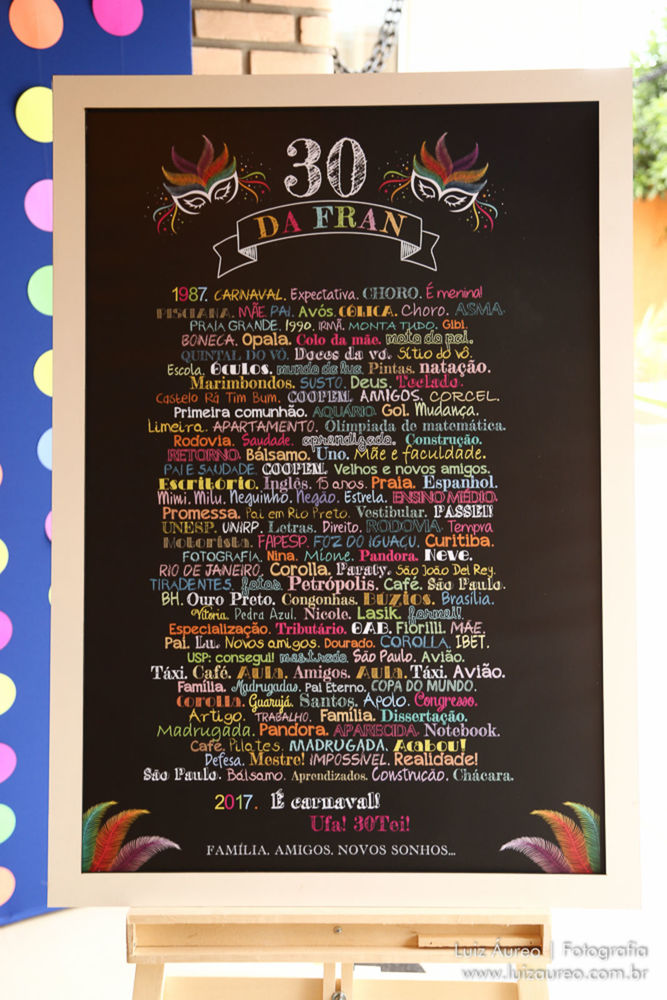 30
DA FRAN
1987. CARNAVAL. Expectativa. CHORO. É menina!
PISCIANA. MÃE. PAI. Avós. CÓLICA. Choro. ASMA.
PRAIA GRANDE. 1990. IRMÃ. MONTA TUDO. Gibi.
BONECA. Opala. Colo da mãe. moto do pai.
QUINTAL DO VÔ. Doces da vó. Sítio do vô.
Escola. Óculos. mundo da lua. Pintas. natação.
Marimbondos. SUSTO. Deus. Teclado.
Castelo Rá Tim Bum. COOPEM. AMIGOS. CORCEL.
Primeira comunhão. AQUÁRIO. Gol. Mudança.
Limeira. APARTAMENTO. Olimpíada de matemática.
Rodovia. Saudade. aprendizado. Construção.
RETORNO. Bálsamo. Uno. Mãe e faculdade.
PAI E SAUDADE. COOPEM. Velhos e novos amigos.
Escritório. Inglês. 15 anos. Praia. Espanhol.
Mimi. Milu. Neguinho. Negão. Estrela. ENSINO MÉDIO.
Promessa. Pai em Rio Preto. Vestibular. PASSEI!
UNESP. UNIRP. Letras. Direito. RODOVIA. Tempra
Motorista. FAPESP. FOZ DO IGUAÇU. Curitiba.
FOTOGRAFIA. Nina. Mione. Pandora. Neve.
RIO DE JANEIRO. Corolla. Paraty. São João Del Rey.
TIRADENTES. fotos. Petrópolis. Café. São Paulo.
BH. Ouro Preto. Congonhas. Búzios. Brasília.
Vitória. Pedra Azul. Nicole. Lasik. formei!
Especialização. Tributário. OAB. Fiorilli. MÃE.
Pai. Lu. Novos amigos. Dourado. COROLLA. IBET.
USP: consegui! mestrado. São Paulo. Avião.
Táxi. Café. Aula. Amigos. Aula. Táxi. Avião.
Família. Madrugadas. Pai Eterno. COPA DO MUNDO.
Corolla. Guarujá. Santos. Apolo. Congresso.
Artigo. TRABALHO. Família. Dissertação.
Madrugada. Pandora. APARECIDA. Notebook.
Café. Pilates. MADRUGADA. Acabou!
Defesa. Mestre! IMPOSSÍVEL. Realidade!
São Paulo. Bálsamo. Aprendizados. Construção. Chácara.
2017. É carnaval!
Ufa! 30Tei!
FAMÍLIA. AMIGOS. NOVOS SONHOS...
Luiz Áureo | Fotografia
www.luizaureo.com.br